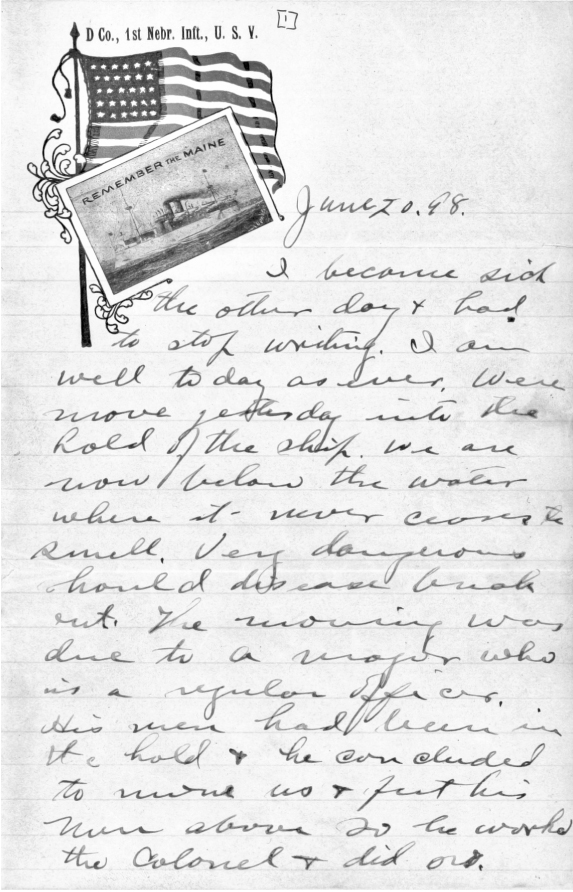 D Co., 1st Nebr. Inft., U. S. V.
1
REMEMBER THE MAINE
June 20. 98.
I became sick
the other day & had
to stop writing. I am
well today as ever. Were
move yesterday into the
hold of the ship. We are
now below the water
where it never ceases to
smell. Very dangerous
should disease break
out. The moving was
due to a major who
is a regular officer.
His men had been in
the hold & he concluded
to move us & put his
men above so he worked
the Colonel & did so.